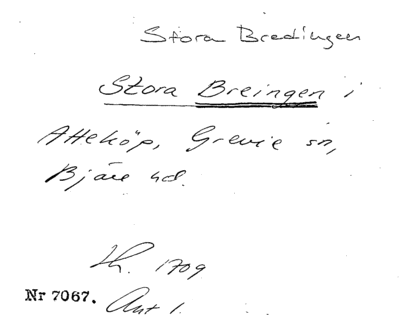 Stora Bredingen
Stora Breingen i
Atteköp, Grevie sn,
Bjäre hd.
Lh. 1709
Nr 7067. Ant 1.